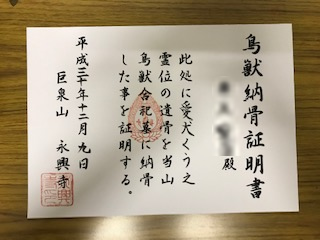 鳥獣納骨証明書
殿
此処に愛犬くう之
霊位の遺骨を当山
鳥獣合祀墓に納骨
した事を証明する。
平成三十年十二月九日
巨泉山　永興寺